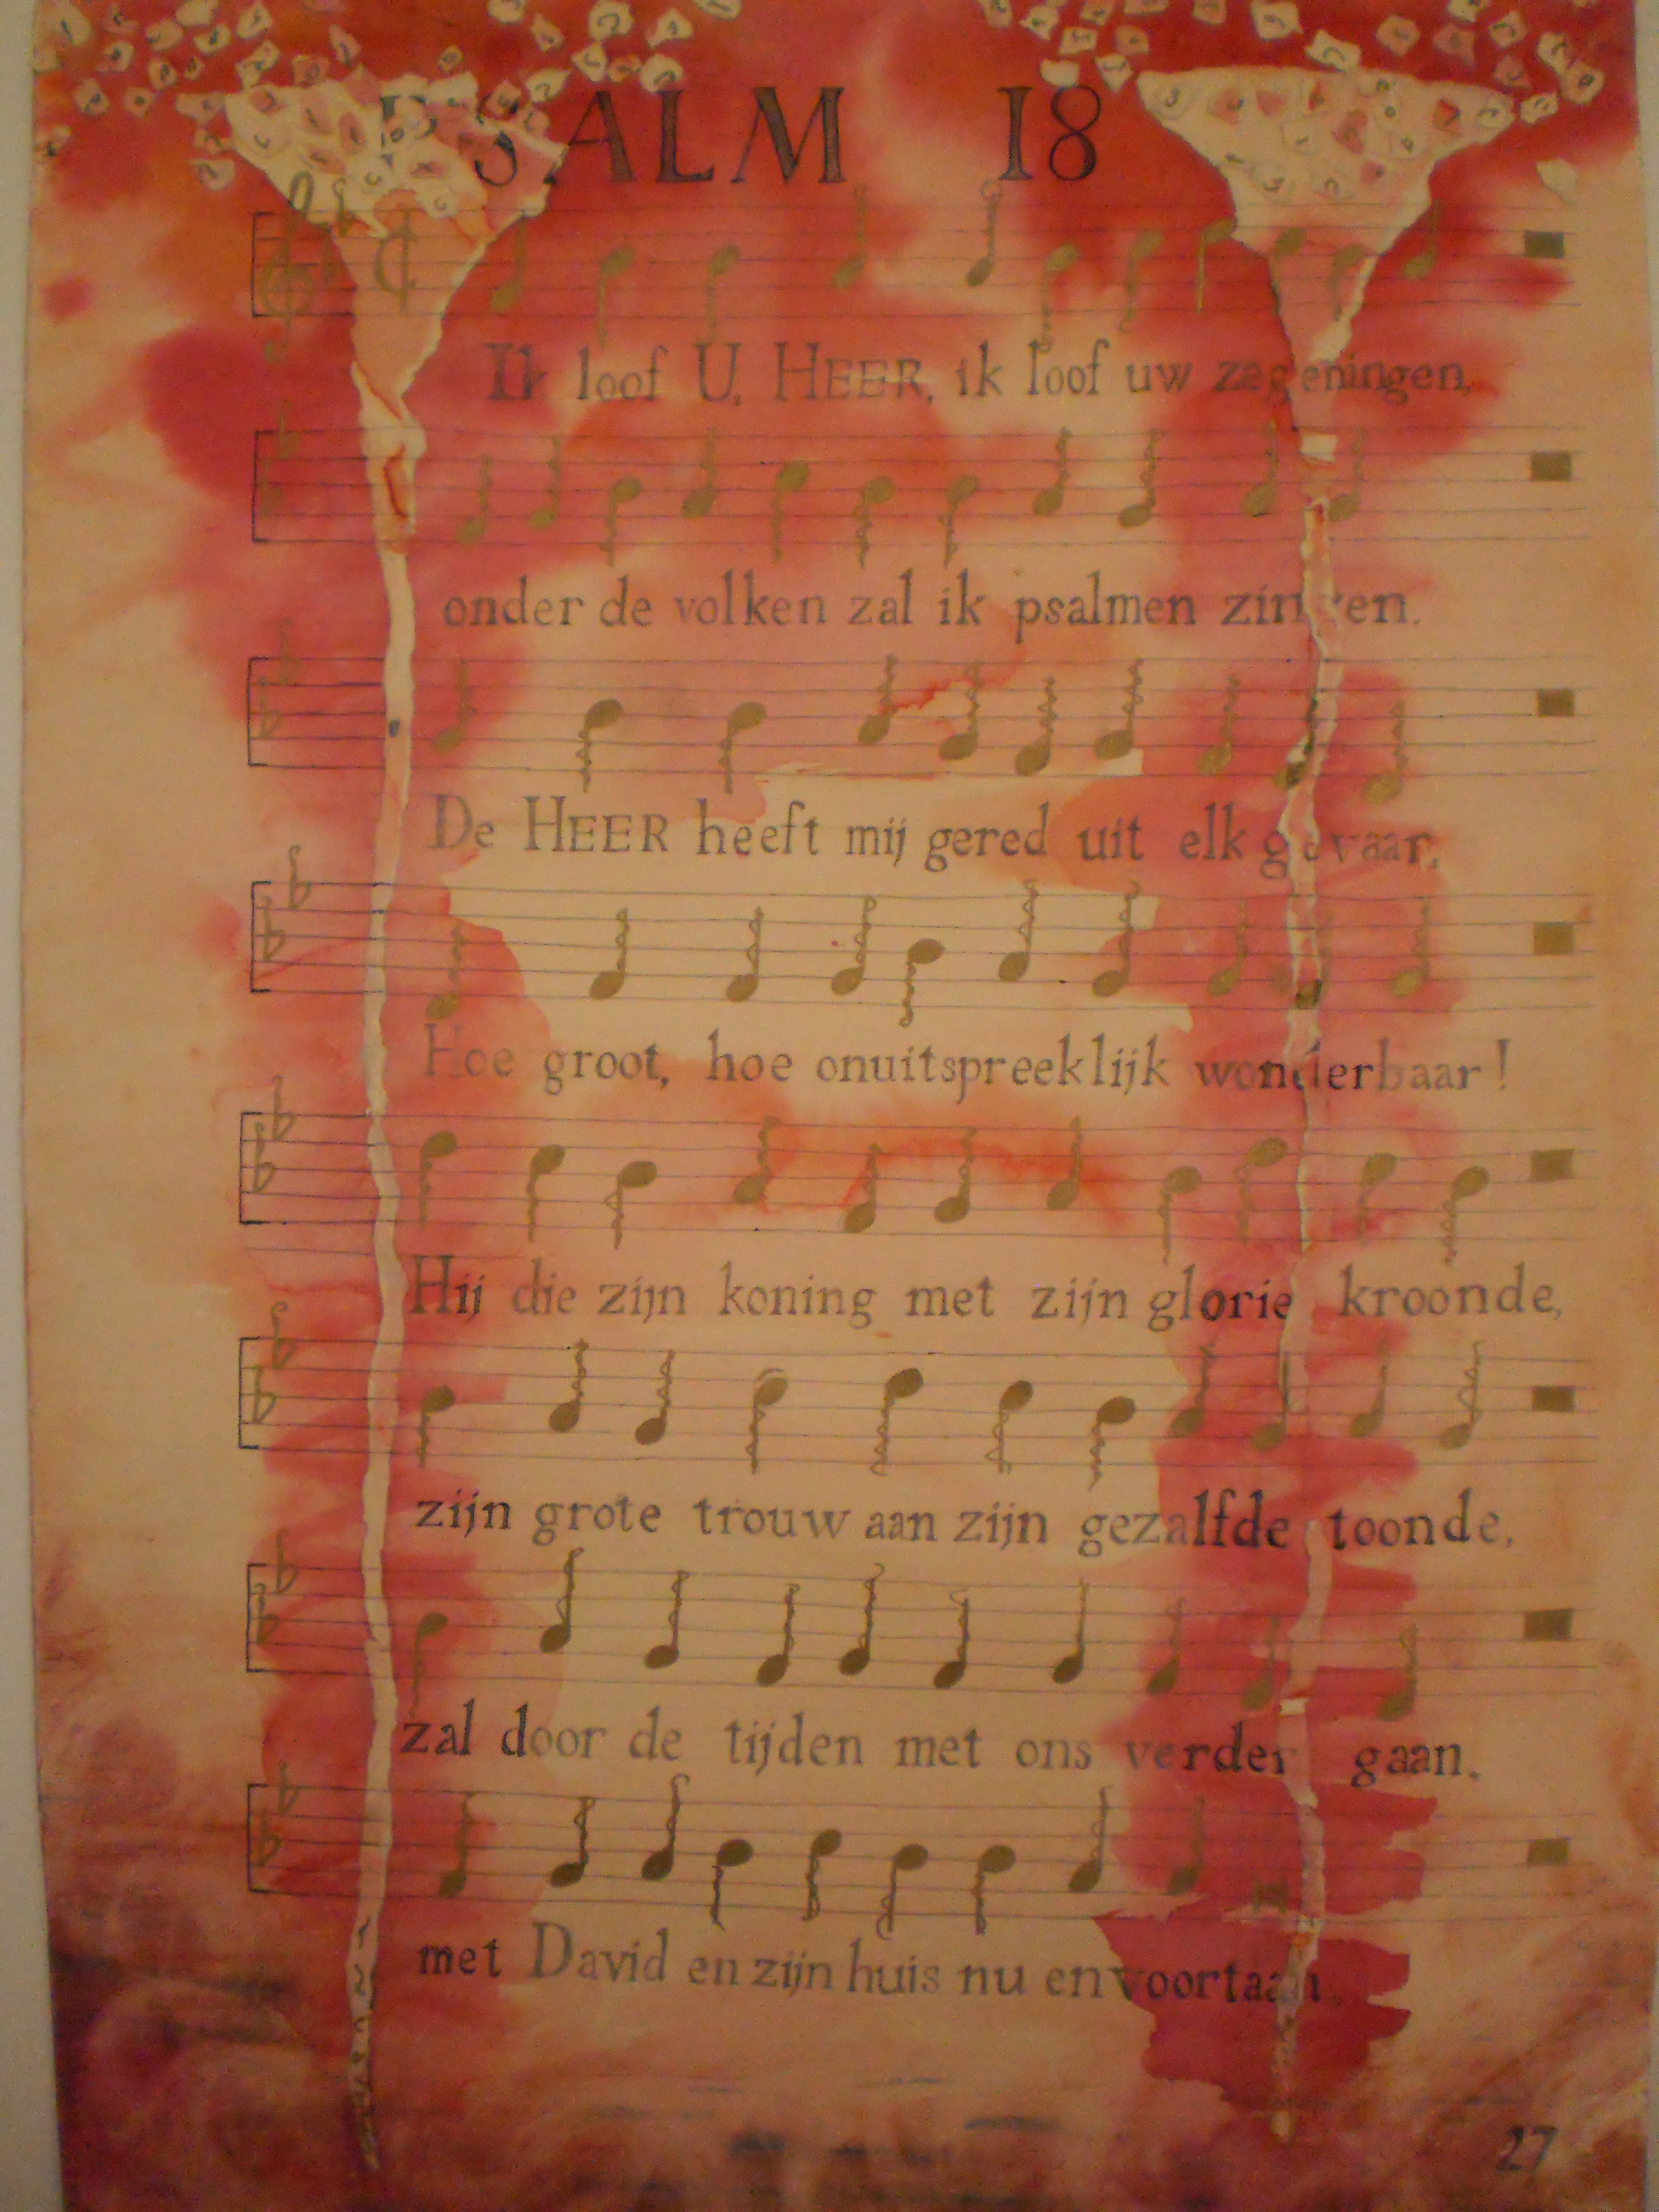 PSALM 18
Ik loof U, HEER, ik loof uw zegeningen,
onder de volken zal ik psalmen zingen.
De HEER heeft mij gered uit elk gevaar.
Hoe groot, hoe onuitspreeklijk wonderbaar!
Hij die zijn koning met zijn glorie kroonde,
zijn grote trouw aan zijn gezalfde toonde,
zal door de tijden met ons verder gaan.
met David en zijn huis nu en voortaan.
27